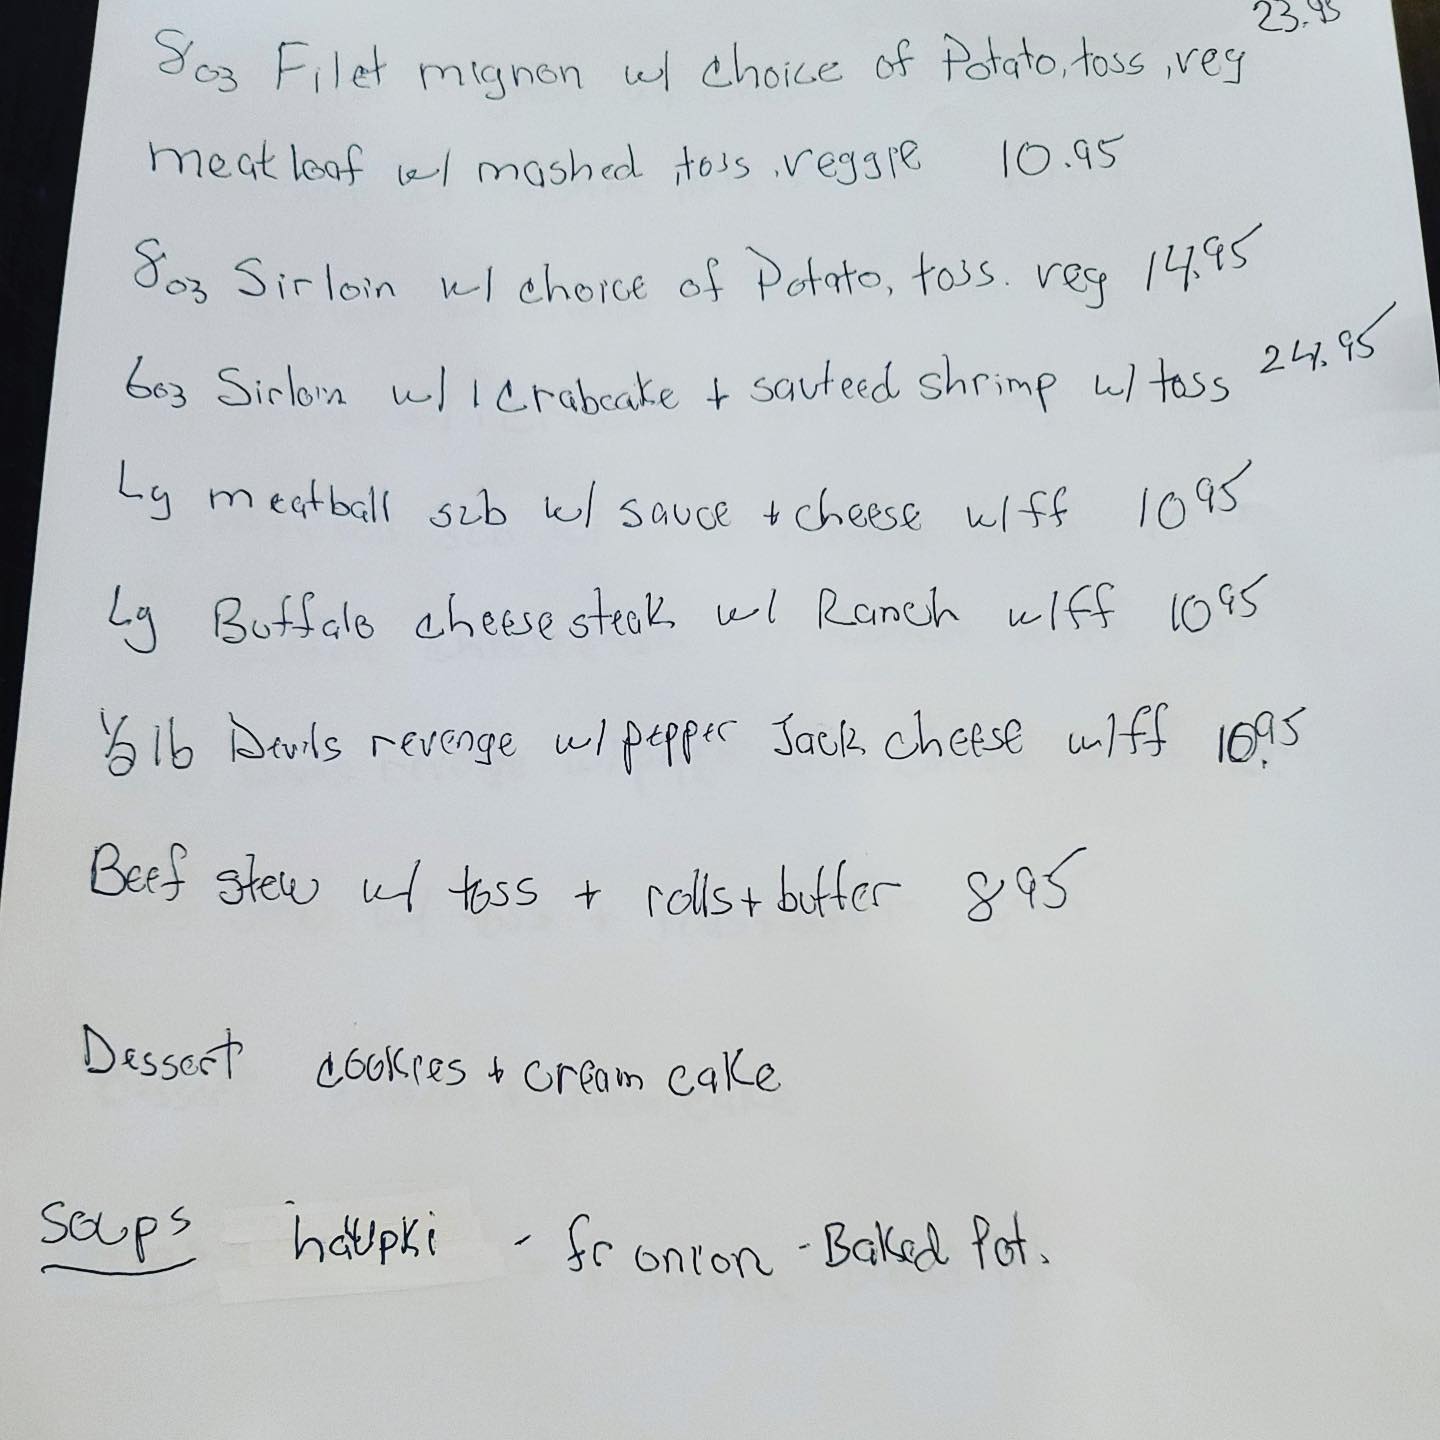 8oz Filet mignon w/ choice of Potato, toss, veg 23.95
meatloaf w/ mashed, toss, veggie 10.95
8oz Sirloin w/ choice of Potato, toss. veg 14.95
6oz Sirloin w/ 1 crabcake + sauteed shrimp w/ toss 24.95
Lg meatball sub w/ sauce + cheese w/ff 10 95
Lg Buffalo cheesesteak w/ Ranch w/ff 10 95
1/2 lb Devils revenge w/ pepper Jack cheese w/ff 10.95
Beef stew w/ toss + rolls + butter 8 95
Dessert cookies + cream cake
Soups halupki - fr onion - Baked Pot.